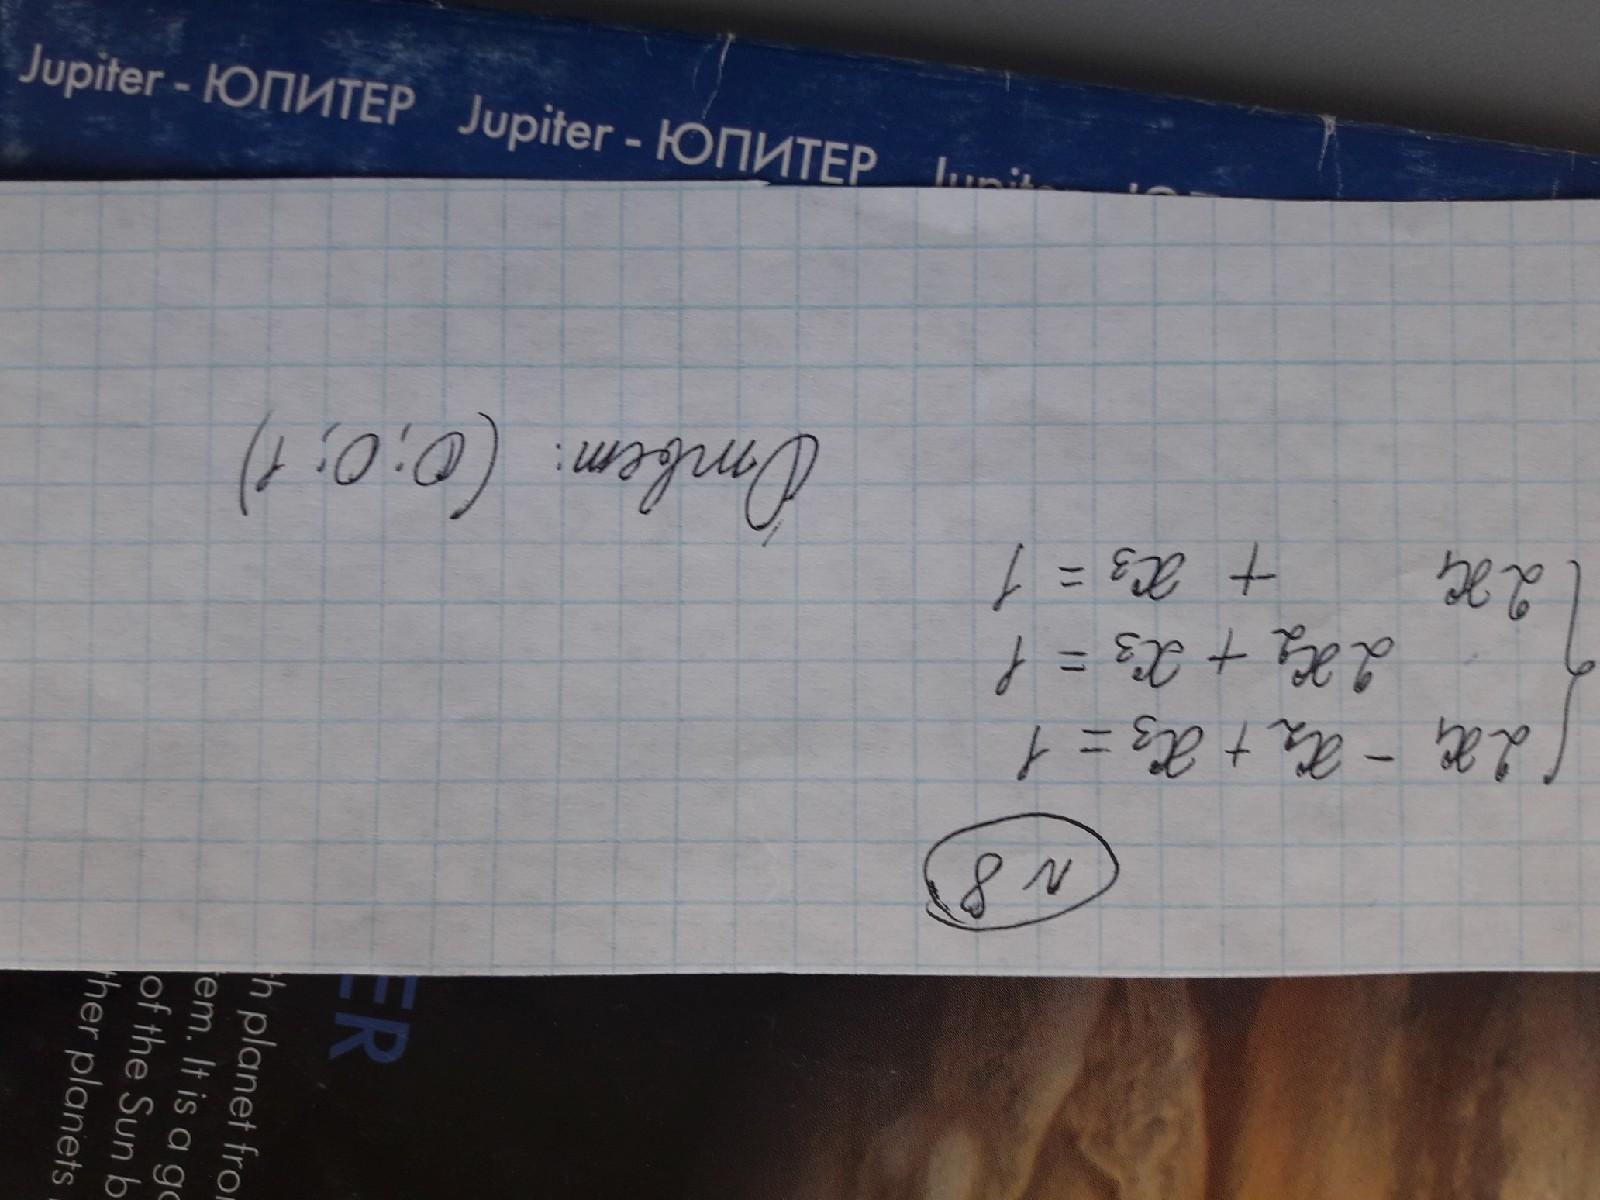 Jupiter - ЮПИТЕР Jupiter - ЮПИТЕР
n 8
2x₁ - x₂ + x₃ = 1
2x₂ + x₃ = 1
2x₁ + x₃ = 1
Ответ: (0; 0; 1)
ER
th planet fro
tem. It is a ga
of the Sun b
ther planets